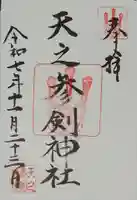 奉拝
天之参剣神社
令和七年十一月二十三日